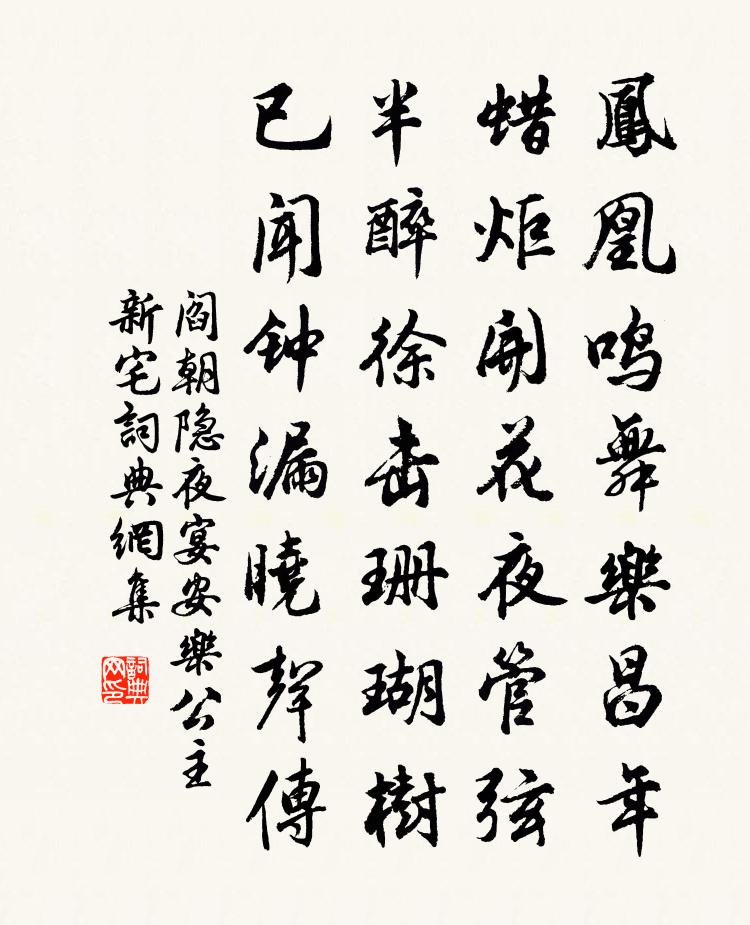 鳳凰鸣舞樂昌年
蜡炬開花夜管弦
半醉徐击珊瑚樹
已闻钟漏曉聲傳
阎朝隐夜宴安樂公主
新宅詞典網集
詞典网印